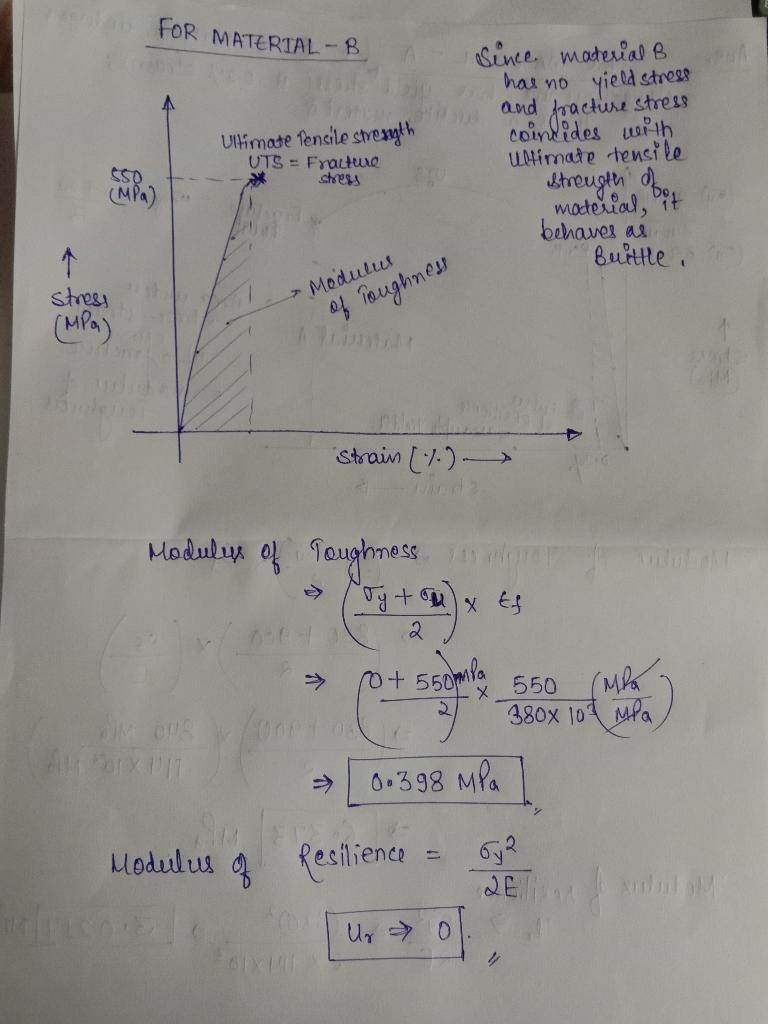 FOR MATERIAL - B
Since material B
has no yield stress
and fracture stress
coincides with
Ultimate tensile
strength of
material, it
behaves as
Brittle.
Ultimate Tensile strength
UTS = Fracture
stress
550
(MPa)
↑
Stress
(MPa)
Modulus
of Toughness
Strain (%) →
Modulus of Toughness
⇒ (σy + σu / 2) × εf
⇒ (0 + 550 / 2) MPa × 550 / 380 × 10³ (MPa / MPa)
⇒ 0.398 MPa
Modulus of Resilience = σy² / 2E
Ur ⇒ 0.